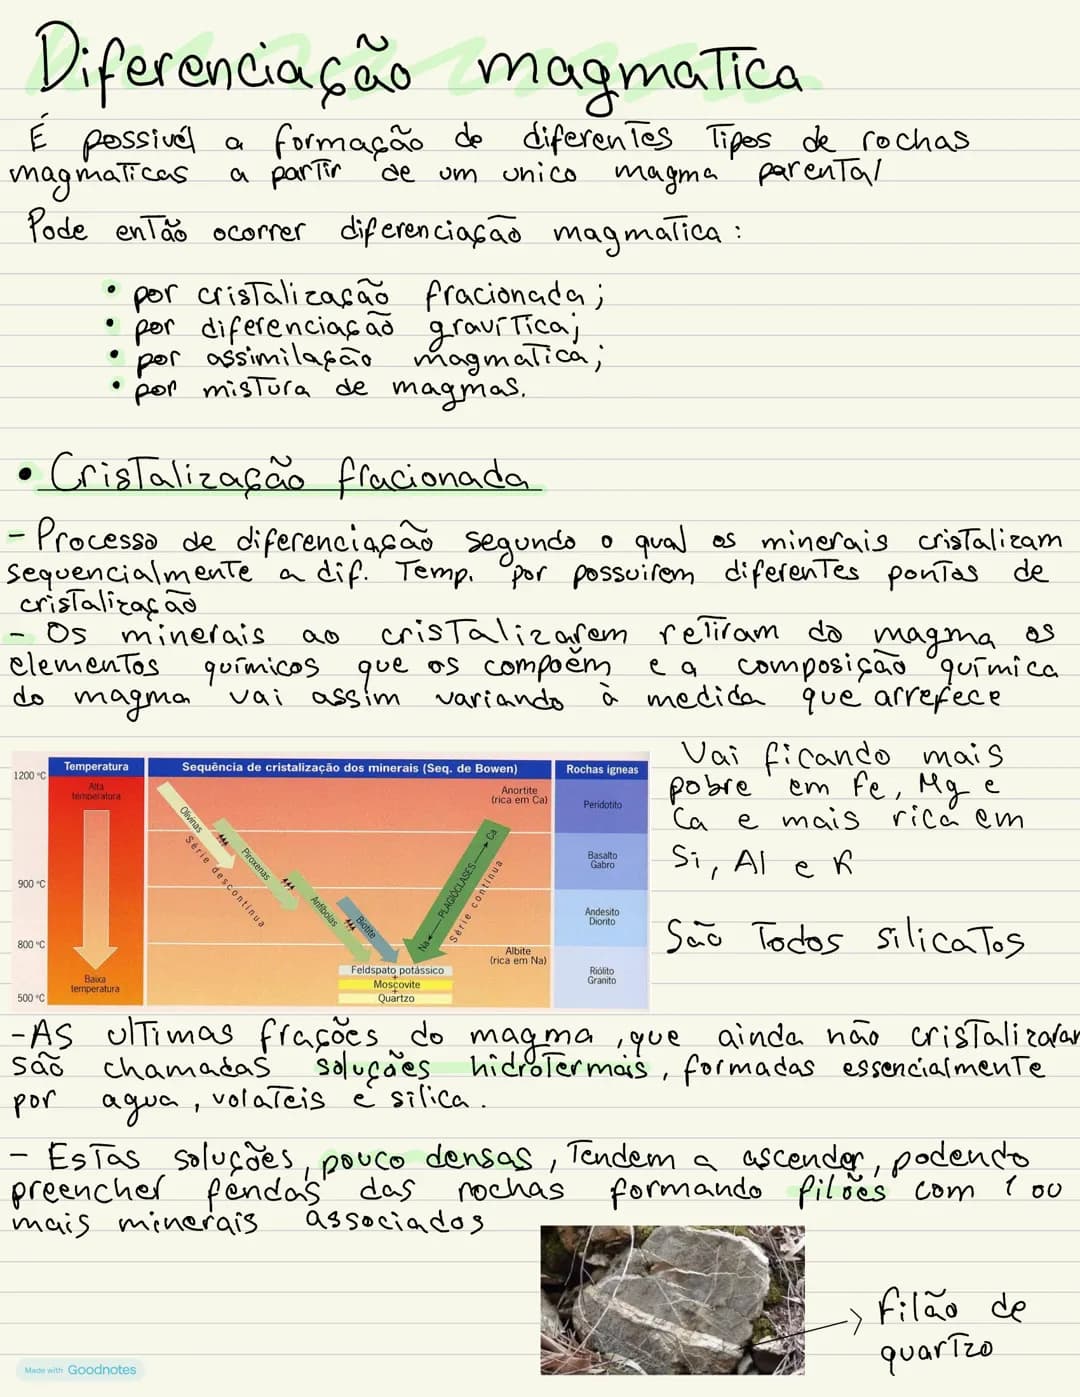 Diferenciação magmatica
É possivél a formação de diferentes Tipos de rochas
magmaticas a partir de um unico magma parental
Pode então ocorrer diferenciação magmatica :
• por cristalização fracionada ;
• por diferenciação gravítica;
• por assimilação magmatica ;
• por mistura de magmas.
• Cristalização fracionada
- Processo de diferenciação segundo o qual os minerais cristalizam
sequencialmente a dif. Temp. por possuirem diferentes pontos de
cristalização
- Os minerais ao cristalizarem retiram do magma os
elementos químicos que os compoêm e a composição química
do magma vai assim variando à medida que arrefece
Temperatura
Sequência de cristalização dos minerais (Seq. de Bowen)
Rochas ígneas
1200 °C
Alta
temperatura
Olivinas
Piroxenas
Anfíbolas
Biotite
Série descontínua
Anortite
(rica em Ca)
Na ← PLAGIÓCLASES → Ca
Série contínua
Peridotito
Basalto
Gabro
900 °C
Andesito
Diorito
800 °C
Albite
(rica em Na)
Baixa
temperatura
Feldspato potássico
+
Moscovite
+
Quartzo
Riólito
Granito
500 °C
Vai ficando mais
pobre em Fe, Mg e
Ca e mais rica em
Si, Al e K
São Todos silicatos
-As ultimas frações do magma , que ainda não cristalizaram
são chamadas soluções hidrotermais , formadas essencialmente
por agua , volateis e silica .
- Estas soluções, pouco densas , Tendem a ascender, podendo
preencher fendas das rochas formando filões com 1 ou
mais minerais associados
→ filão de
quartzo
Made with Goodnotes